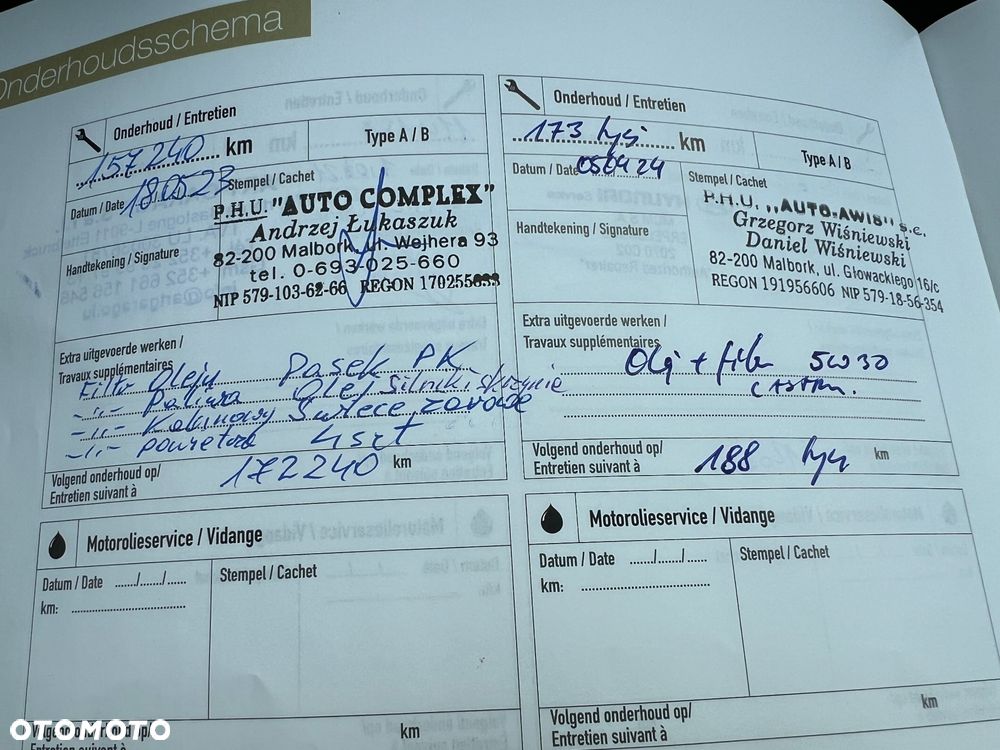 Onderhoudsschema
Onderhoud / Entretien
157240 km
Type A / B
Datum / Date 18.05.23
Stempel / Cachet
P.H.U. "AUTO COMPLEX"
Andrzej Łukaszuk
82-200 Malbork, ul. Wejhera 93
tel. 0-693-025-660
NIP 579-103-62-66 REGON 170255633
Handtekening / Signature
Extra uitgevoerde werken /
Travaux supplémentaires
Filtr Oleju Pasek PK
-„- Paliwa Olej Silnik i skrzynie
-„- Kabinowy Świece żarowe
-„- powietrza 4szt
Volgend onderhoud op/
Entretien suivant à
172240 km
Onderhoud / Entretien
173 tyś km
Type A / B
Datum / Date 05 04 24
Stempel / Cachet
P.H.U. „AUTO-AWIS" s.c.
Grzegorz Wiśniewski
Daniel Wiśniewski
82-200 Malbork, ul. Głowackiego 16/c
REGON 191956606 NIP 579-18-56-354
Handtekening / Signature
Extra uitgevoerde werken /
Travaux supplémentaires
Olej + filtr 5W30
Volgend onderhoud op/
Entretien suivant à
188 tyś km
Motorolieservice / Vidange
Datum / Date ...../....../......
Stempel / Cachet
km:
Volgend onderhoud op/
Entretien suivant à
km
Motorolieservice / Vidange
Datum / Date ...../....../......
Stempel / Cachet
km:
Volgend onderhoud op/
Entretien suivant à
km
OTOMOTO